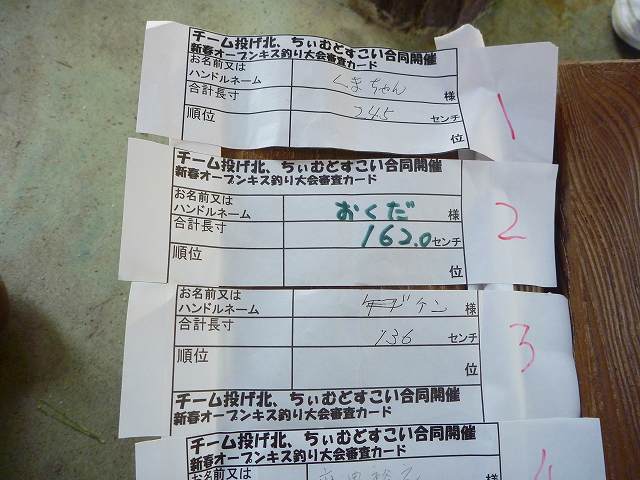 チーム投げ北、ちぃむどすこい合同開催
新春オープンキス釣り大会審査カード
お名前又は
ハンドルネーム くまちゃん 様
合計長寸 245 センチ
順位 位
1
チーム投げ北、ちぃむどすこい合同開催
新春オープンキス釣り大会審査カード
お名前又は
ハンドルネーム おくだ 様
合計長寸 162.0 センチ
順位 位
2
お名前又は
ハンドルネーム ケン 様
合計長寸 136 センチ
順位 位
3
チーム投げ北、ちぃむどすこい合同開催
新春オープンキス釣り大会審査カード
チーム投げ北、ちぃむどすこい合同開催
新春オープンキス釣り大会審査カード
お名前又は
様
4